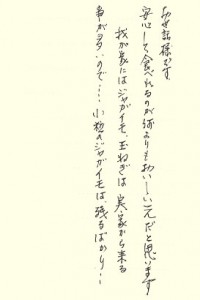 お世話様です
安心して食べれるのが何よりもおいしい元だと思います
我が家にはジャガイモ、玉ねぎは実家から来る
事が多いので… 小粒のジャガイモは、残るばかり…